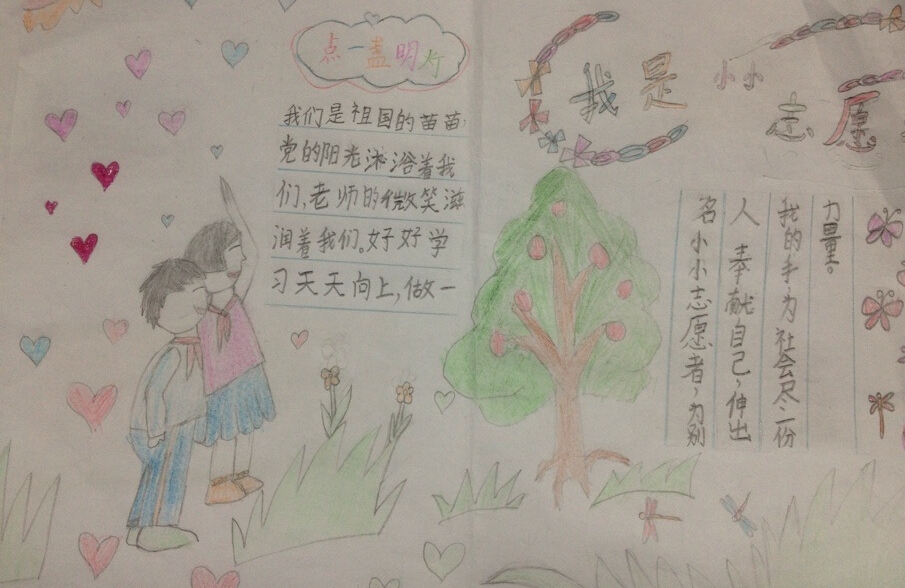 点一盏明灯
我们是祖国的苗苗，
党的阳光沐浴着我
们，老师的微笑滋
润着我们。好好学
习天天向上，做一
我是小小志愿
名小小志愿者，为别
人奉献自己，伸出
我的手，为社会尽一份
力量。